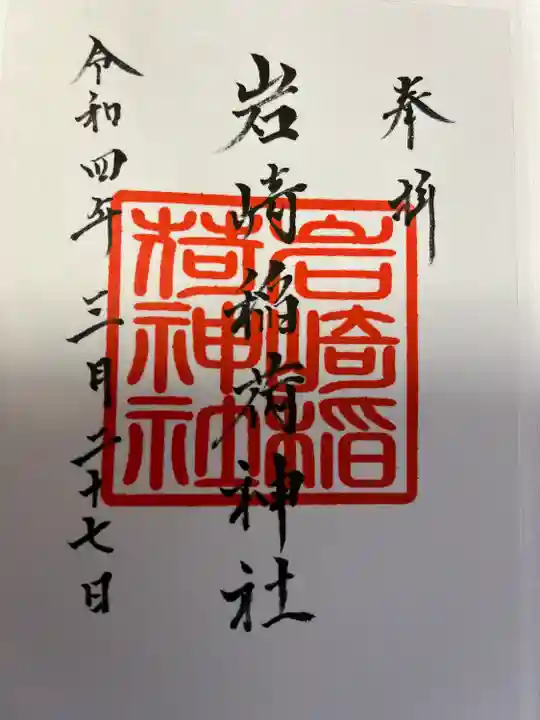 奉拝
岩崎稲荷神社
岩崎稲
荷神社
令和四年三月二十七日